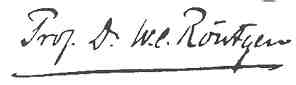 Prof. Dr. W.C. Röntgen